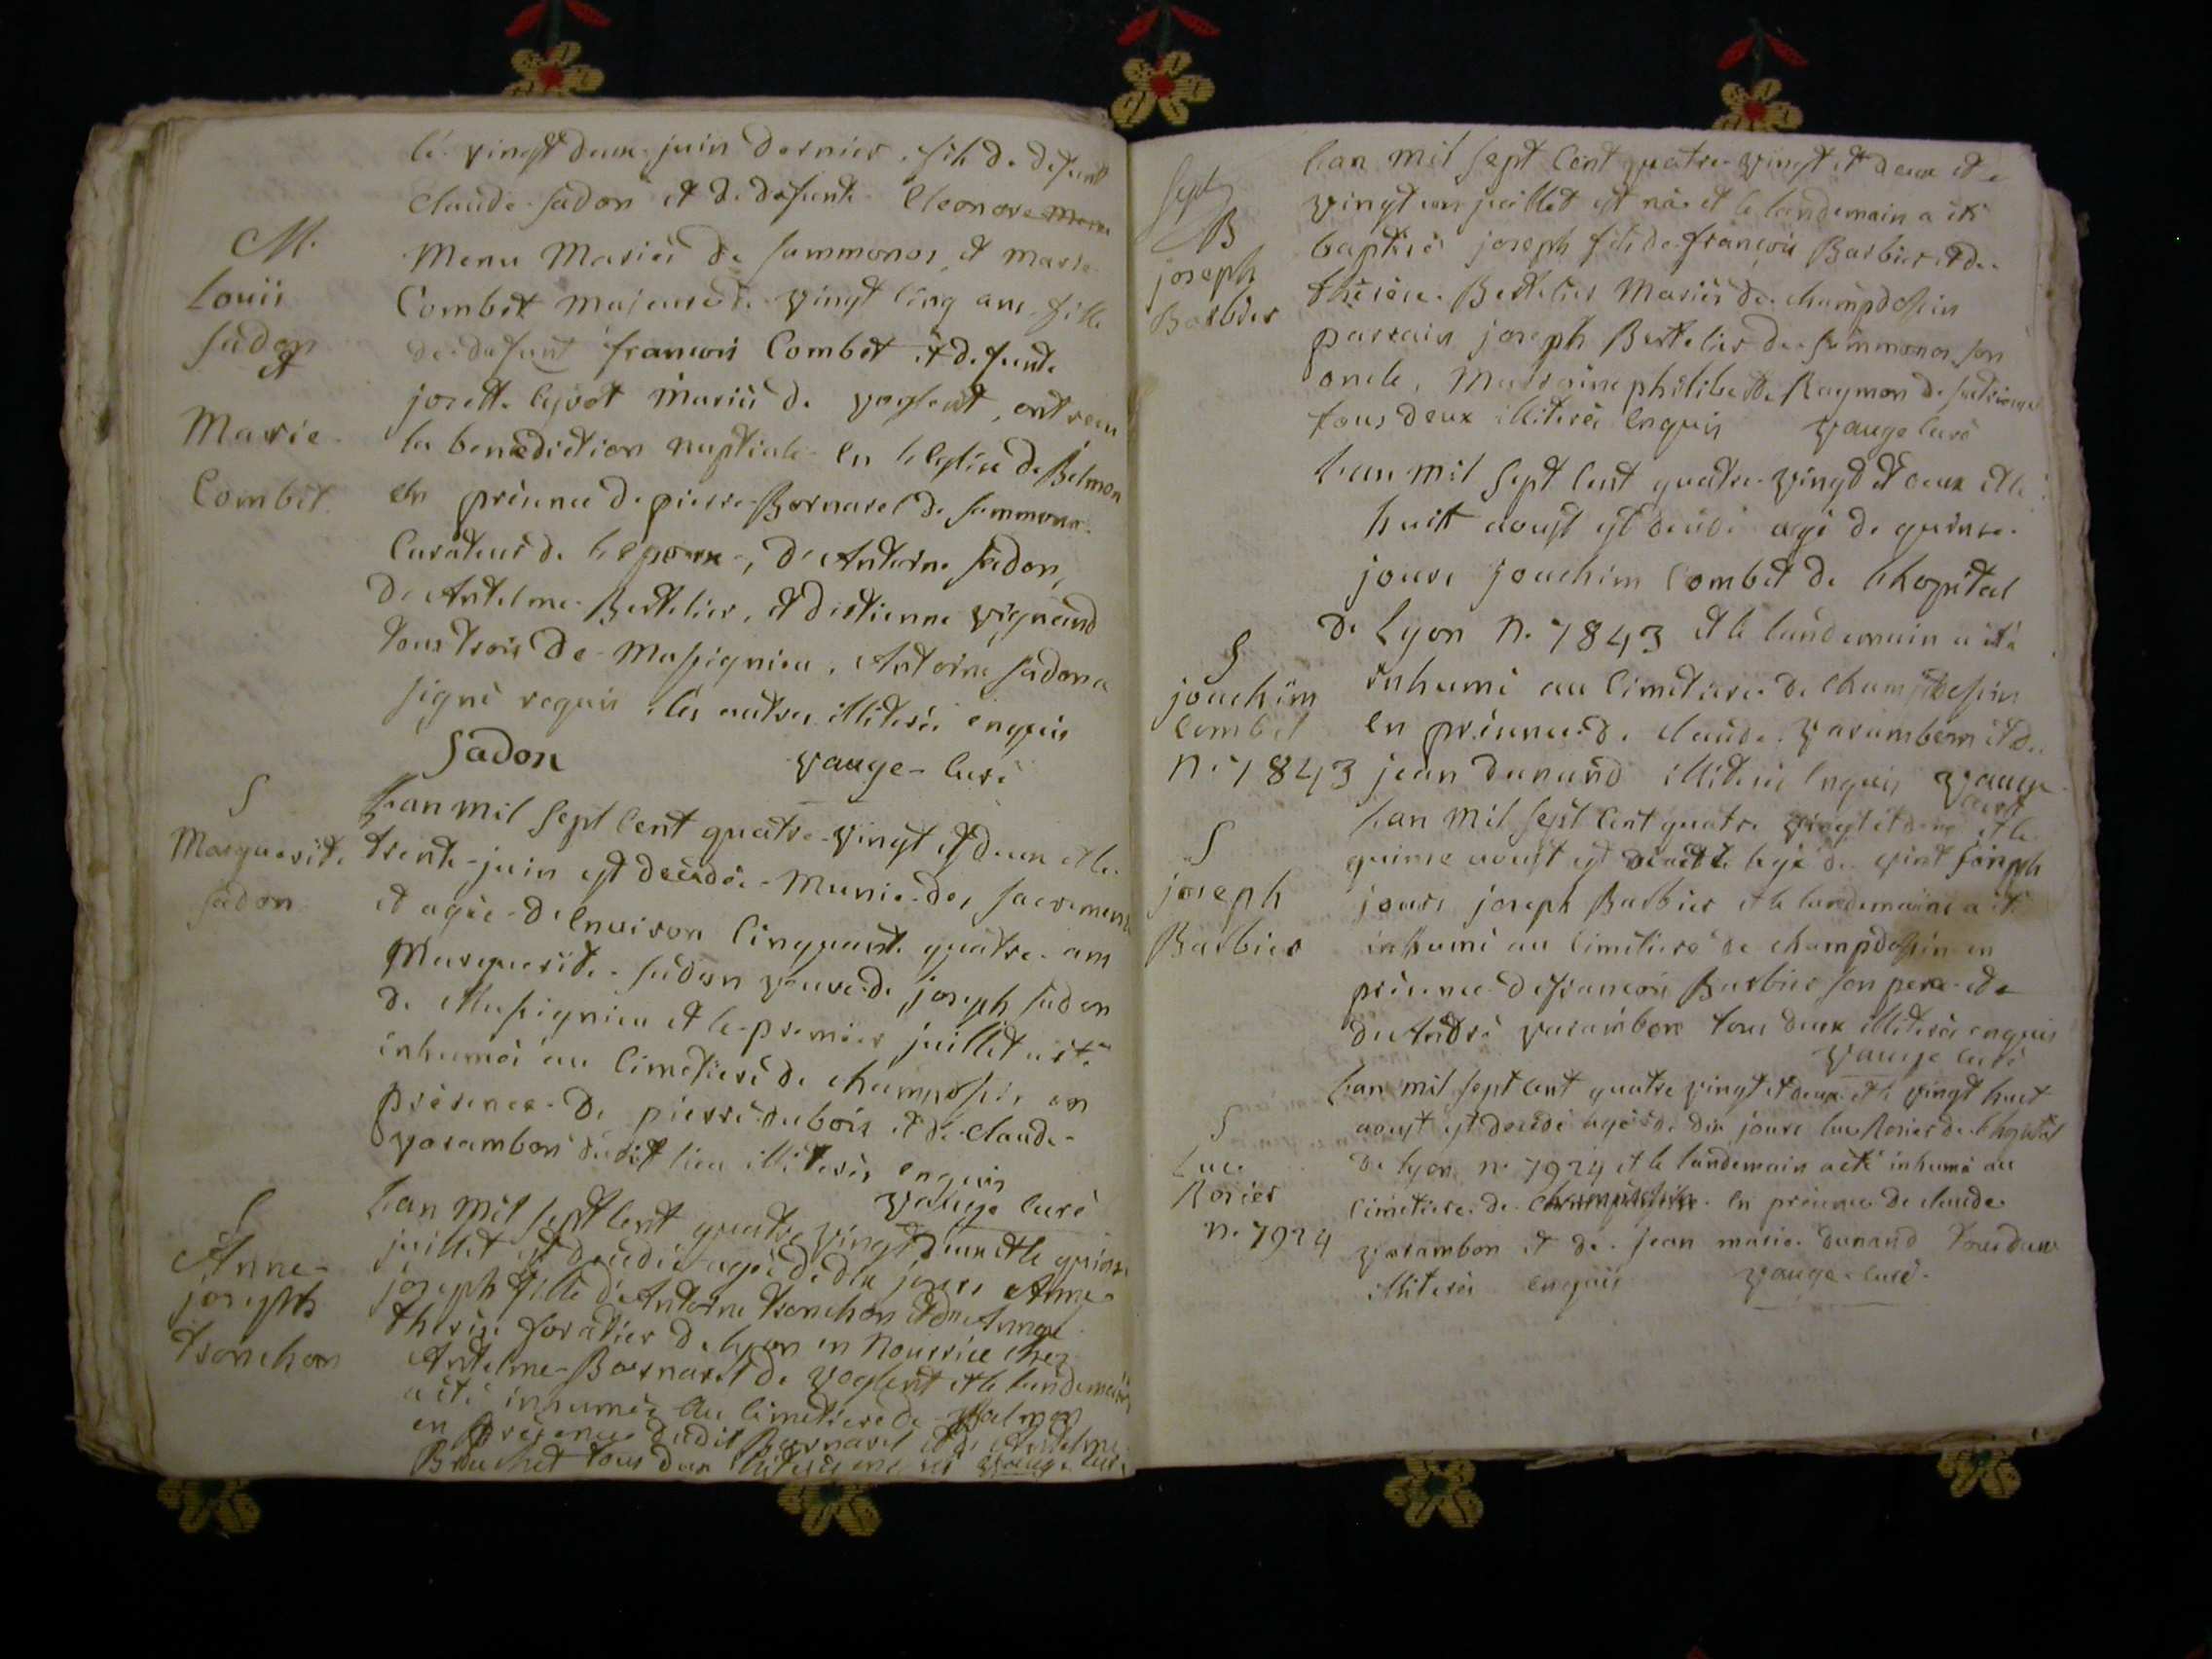 le vingt deux juin dernier fils de defunt
claude sadon et de defunte Eleonore
M.
Menu Mariés de sammonos et marie
Louis
Combet majeure de vingt cinq ans fille
sadon
de defunt francois Combet et defunte
et
josette lyvet mariés de voglent, ont recu
Marie
la benediction nuptiale en leglise de Belmon
Combet.
en presence de pierre Bornarel de sammonos
Curateur de lepoux, de Antoine sadon,
de Antelme Bertelier, et distienne vignand
tous trois de Massignieu, Antoine sadon a
signé requis les autres illiterés enquis
Sadon vauge curé
S
Marguerite
sadon
Lan mil sept cent quatre vingt et deux et le
trente juin est decedée munie des sacremens
et agée denviron cinquante quatre ans
Marguerite sadon veuve de joseph sadon
de Massignieu et le premier juillet a eté
inhumée au cimetiere de champdossin en
presence de pierre dubois et de claude
varambon dudit lieu illiterés enquis
vauge curé
S
Anne
joseph
tronchon
Lan mil sept cent quatre vingt deux et le quinze
juillet est decedée agée de dix jours Anne
joseph fille d'Antoine tronchon et de Anne
therese foratier de lyon en nourrice chez
Antelme Bornarel de voglent et le lendemain
a eté inhumée au cimetiere de Belmon
en presence dudit Bornarel et de Antelme
Bruchet tous deux illiterés enquis vauge curé
B
joseph
Barbier
Lan mil sept cent quatre vingt et deux et le
vingt un juillet est né et le landemain a eté
baptisé joseph fils de françois Barbier et de
therese Bertelier Mariés de champdossin
parrain joseph Bertelier de sammonos son
oncle, Marraine philiberte Raymon de
tous deux illiterés enquis vauge curé
Lan mil sept cent quatre vingt et deux et le
huitt aoust est decedé agé de quinze
jours jouachim Combet de lhopital
de Lyon N. 7843 et le landemain a eté
S
jouachim
Combet
N. 7843
inhumé au cimetiere de champdossin
en presence de claude varambon et de
jean dunand illiterés enquis vauge
curé
S
joseph
Barbier
Lan mil sept cent quatre vingt et deux et le
quinze aoust est decedé agé de vint
jours joseph Barbier et le landemain a eté
inhumé au cimetiere de champdossin en
presence de françois Barbier son pere et de
de André varambon tous deux illiterés enquis
vauge curé
S
Luc
Rosier
n. 7924
Lan mil sept cent quatre vingt et deux et le vingt huet
aoust est decedé agé de dix jours luc Rosier de lhopital
de lyon n. 7924 et le landemain a eté inhumé au
cimetiere de champdossin en presence de claude
varambon et de jean marie dunand tous deux
illiterés enquis vauge curé